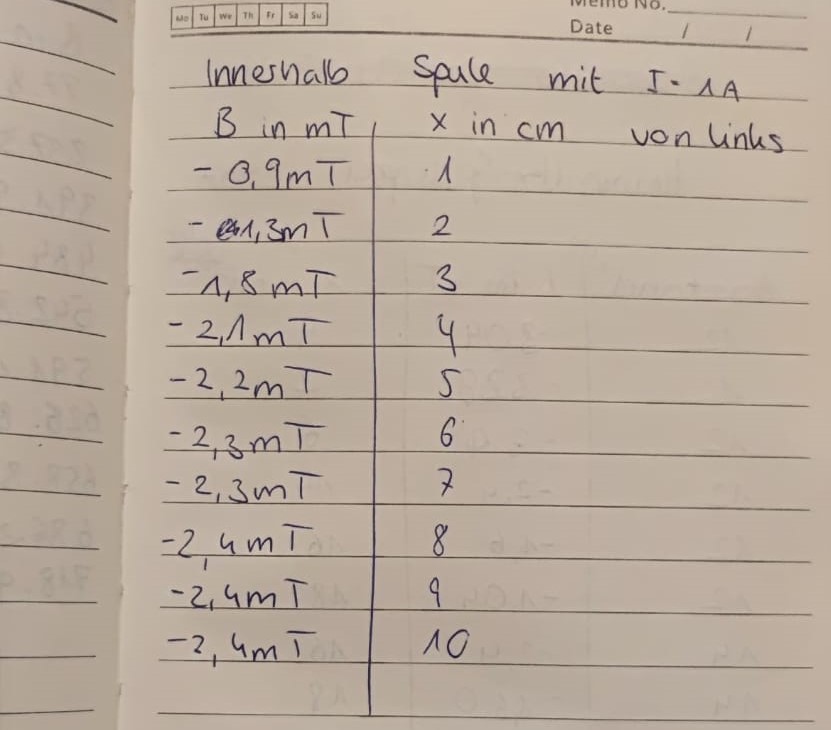 Memo No.
Mo Tu We Th Fr Sa Su
Date / /
Innerhalb Spule mit I = 1A
B in mT x in cm von links
- 0,9mT 1
- 1,3mT 2
-1,8mT 3
- 2,1mT 4
-2,2mT 5
-2,3mT 6
-2,3mT 7
-2,4mT 8
-2,4mT 9
-2,4mT 10